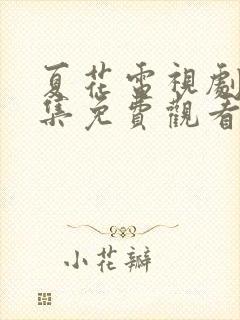 夏花電視劇
集免費觀看
小花瓣